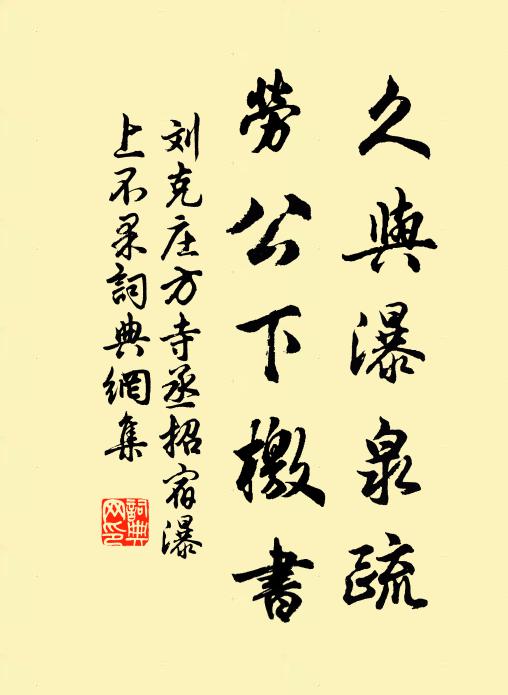 久與瀑泉疏
勞公下檄書
刘克庄方寺丞招宿瀑
上不果詞典網集
詞典
网印